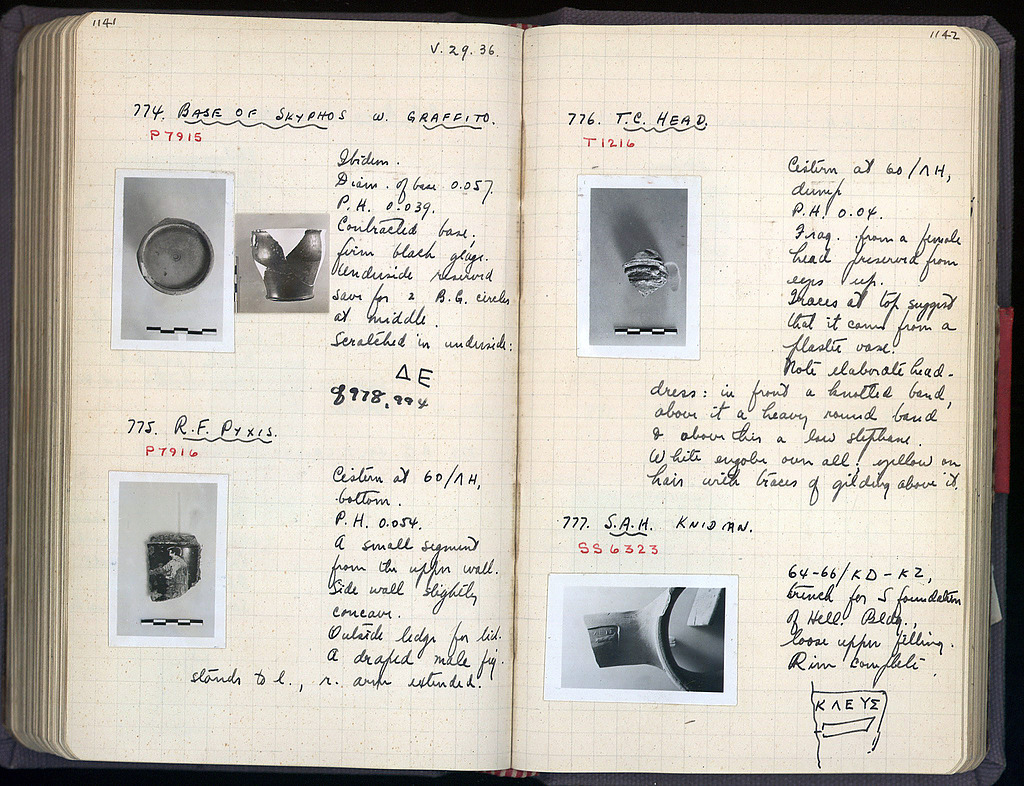 1141
V. 29. 36.
774. BASE OF SKYPHOS W. GRAFFITO.
P 7915
Ibidem.
Diam. of base 0.057.
P.H. 0.039.
Contracted base,
firm black glaze.
Underside reserved
save for 2 B.G. circles
at middle.
Scratched in underside:
ΔΕ
775. R.F. PYXIS.
P 7916
Cistern at 60/ΛH,
bottom.
P.H. 0.054.
A small segment
from the upper wall.
Side wall slightly
concave.
Outside ledge for lid.
A draped male fig.
stands to l., r. arm extended.
1142
776. T.C. HEAD.
T 1216
Cistern at 60/ΛH,
dump
P.H. 0.04.
Frag. from a female
head preserved from
eyes up.
Traces at top suggest
that it came from a
plastic vase.
Note elaborate head-
dress: in front a knotted band,
above it a heavy round band
& above this a low stephane.
White engobe over all; yellow on
hair with traces of gilding above it.
777. S.A.H. KNIDIAN.
SS 6323
64-66/KD-KZ,
trench for S foundation
of Hell. Bldg.,
loose upper filling.
Rim complete
ΚΛΕΥΣ